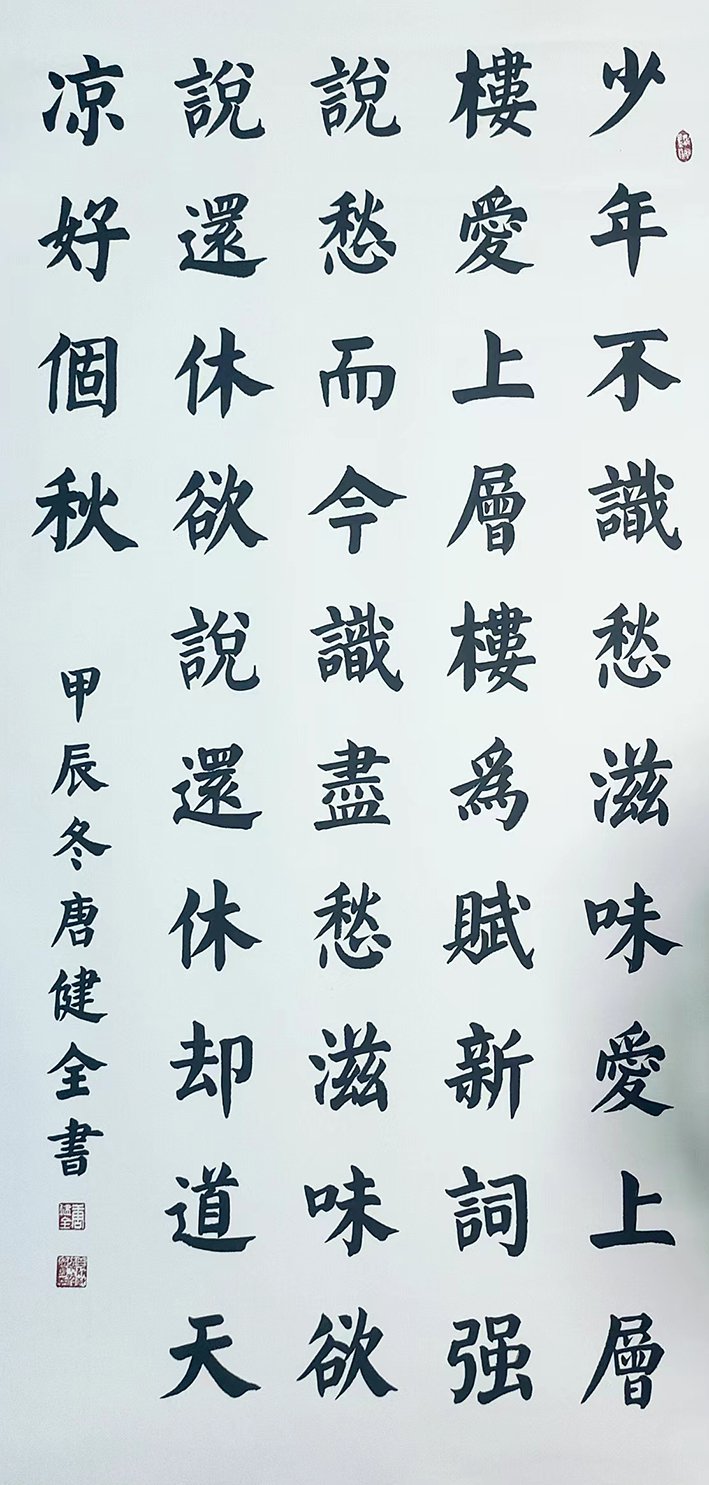 少年不識愁滋味愛上層
樓愛上層樓為賦新詞强
說愁而今識盡愁滋味欲
說還休欲說還休却道天
凉好個秋
甲辰冬唐健全書
唐健全